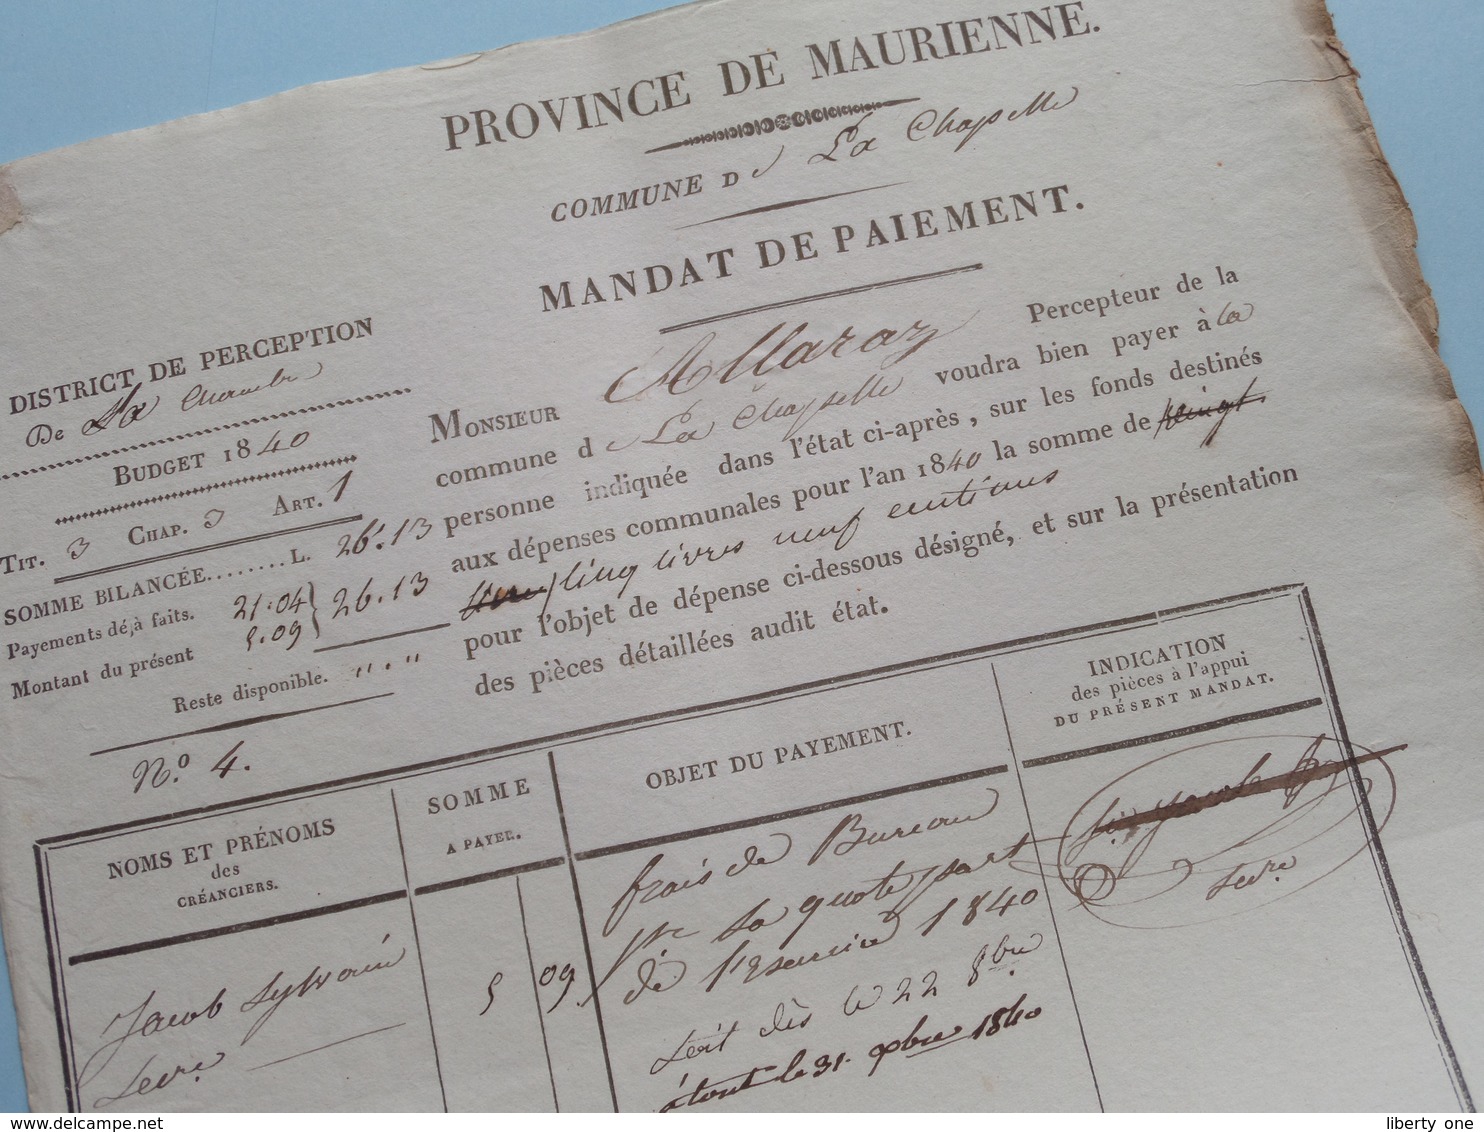 PROVINCE DE MAURIENNE.
COMMUNE D e La Chapelle
MANDAT DE PAIEMENT.
DISTRICT DE PERCEPTION
De La Chambre
BUDGET 1840
TIT. 3 CHAP. 3 ART. 1
SOMME BILANCÉE........ L. 26.13
Payements déjà faits. 21.04
Montant du présent 5.09 } 26.13
Reste disponible. " . "
N.o 4.
MONSIEUR Allaraz Percepteur de la
commune d e La Chapelle voudra bien payer à la
personne indiquée dans l'état ci-après, sur les fonds destinés
aux dépenses communales pour l'an 1840 la somme de vingt
livres cinq livres neuf centimes
pour l'objet de dépense ci-dessous désigné, et sur la présentation
des pièces détaillées audit état.
NOMS ET PRÉNOMS
des
CRÉANCIERS.
SOMME
A PAYER.
OBJET DU PAYEMENT.
INDICATION
des pièces à l'appui
DU PRÉSENT MANDAT.
Jacob Sylvain
secre.
5 09
frais de Bureau
pr. sa quote part
de l'Exercice 1840
soit dès le 22 8bre
à tout le 31. xbre 1840
secre
liberty one